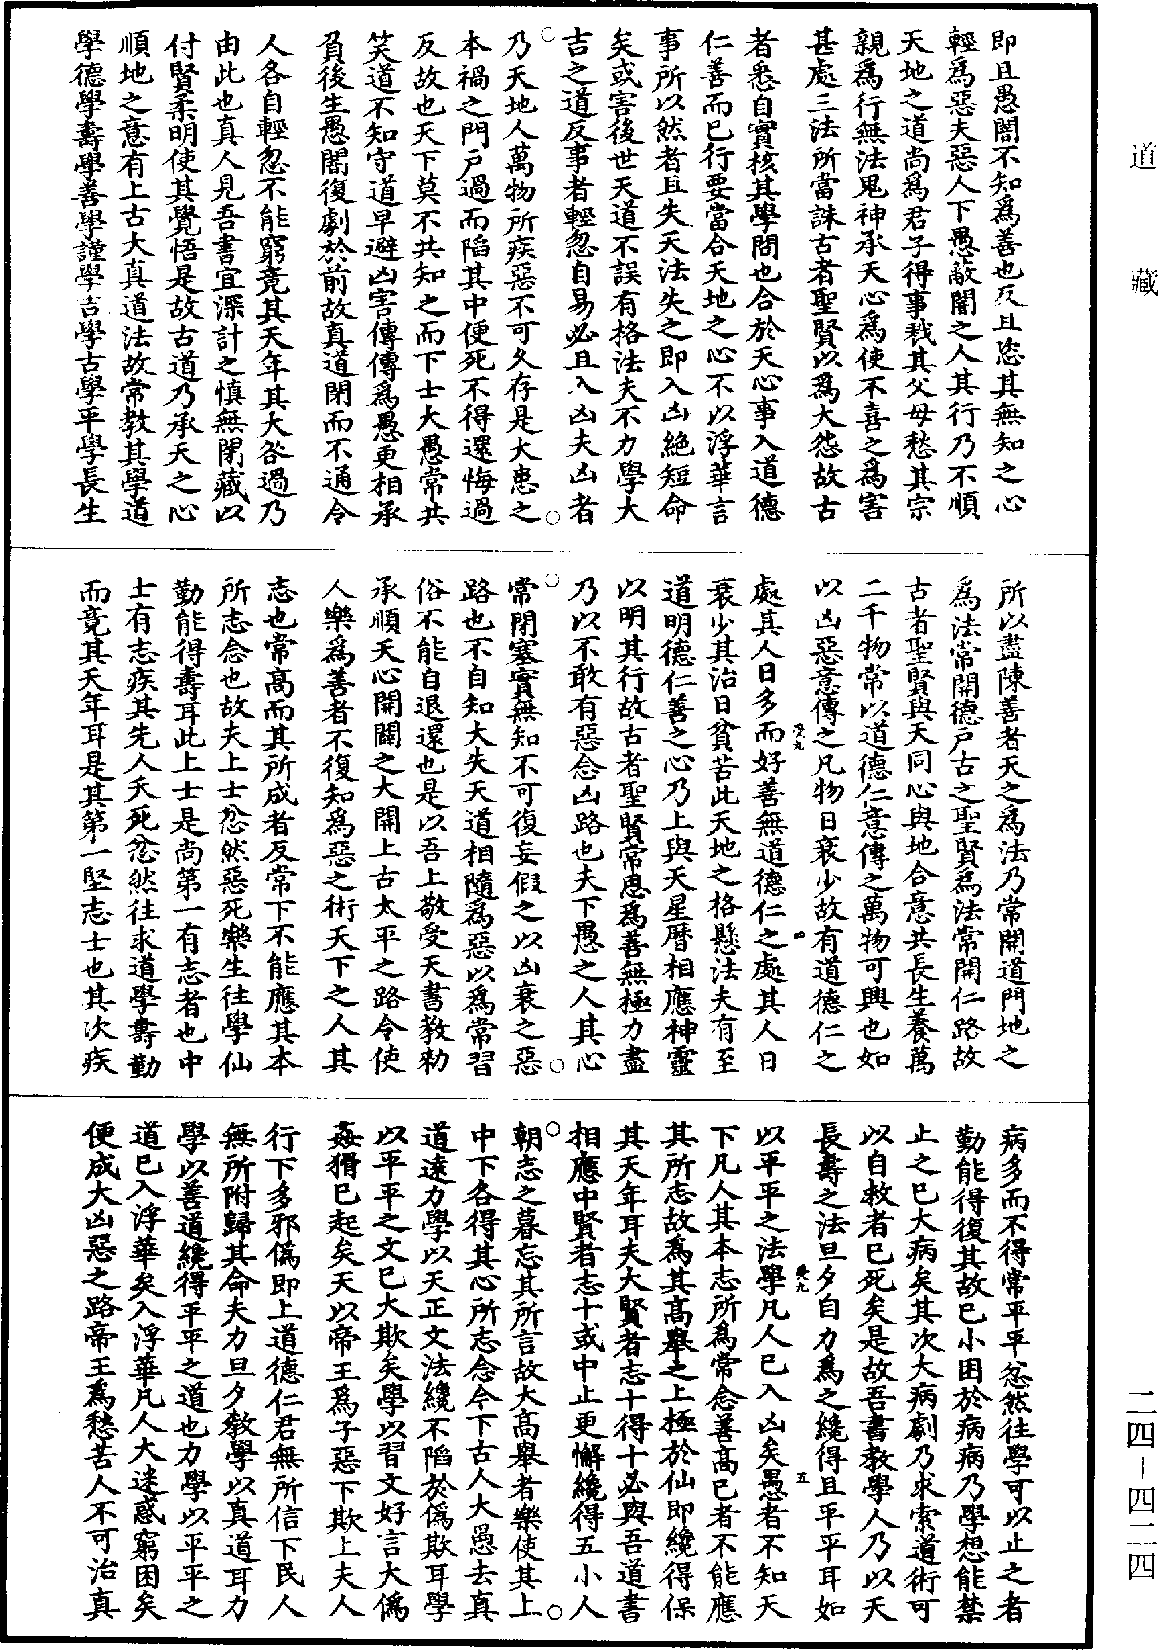 即且愚闇不知為善也反且恣其無知之心
輕為惡夫惡人下愚敝闇之人其行乃不順
天地之道尚為君子得事戮其父母愁其宗
親為行無法鬼神承天心為使不喜之為害
甚處三法所當誅古者聖賢以為大怨故古
者悉自實核其學問也合於天心事入道德
仁善而已行要當合天地之心不以浮華言
事所以然者且失天法失之即入凶絕短命
矣或害後世天道不誤有格法夫不力學大
吉之道反事者輕忽自易必且入凶夫凶者
乃天地人萬物所疾惡不可久存是大患之
本禍之門戶過而陷其中便死不得還悔過
反故也天下莫不共知之而下士大愚常共
笑道不知守道早避凶害傳傳為愚更相承
負後生愚闇復劇於前故真道閉而不通令
人各自輕忽不能窮竟其天年其大咎過乃
由此也真人見吾書宜深計之慎無閉藏以
付賢柔明使其覺悟是故古道乃承天之心
順地之意有上古大真道法故常教其學道
學德學壽學善學謹學吉學古學平學長生
所以盡陳善者天之為法乃常開道門地之
為法常開德戶古之聖賢為法常開仁路故
古者聖賢與天同心與地合意共長生養萬
二千物常以道德仁意傳之萬物可興也如
以凶惡意傳之凡物日衰少故有道德仁之
處其人日多而好善無道德仁之處其人日
衰少其治日貧苦此天地之格懸法夫有至
道明德仁善之心乃上與天星曆相應神靈
以明其行故古者聖賢常思為善無極力盡
乃以不敢有惡念凶路也夫下愚之人其心
常閉塞實無知不可復妄假之以凶衰之惡
路也不自知大失天道相隨為惡以為常習
俗不能自退還也是以吾上敬受天書教勑
承順天心開闢之大開上古太平之路令使
人樂為善者不復知為惡之術天下之人其
志也常高而其所成者反常下不能應其本
所志念也故夫上士忿然惡死樂生往學仙
勤能得壽耳此上士是尚第一有志者也中
士有志疾其先人夭死忿然往求道學壽勤
而竟其天年耳是其第一堅志士也其次疾
病多而不得常平平忿然往學可以止之者
勤能得復其故已小困於病病乃學想能禁
止之已大病矣其次大病劇乃求索道術可
以自救者已死矣是故吾書教學人乃以天
長壽之法旦夕自力為之纔得且平平耳如
以平平之法學凡人已入凶矣愚者不知天
下凡人其本志所為常念善高已者不能應
其所志故為其高舉之上極於仙即纔得保
其天年耳夫大賢者志十得十必與吾道書
相應中賢者志十或中止更懈纔得五小人
朝志之暮忘其所言故大高舉者樂使其上
中下各得其心所志念今下古人大愚去真
道遠力學以天正文法纔不陷於偽欺耳學
以平平之文已大欺矣學以習文好言大偽
姦猾已起矣天以帝王為子惡下欺上夫人
行下多邪偽即上道德仁君無所信下民人
無所附歸其命夫力旦夕教學以真道耳力
學以善道纔得平平之道也力學以平平之
道已入浮華矣入浮華凡人大迷惑窮困矣
便成大凶惡之路帝王為愁苦人不可治真
道
藏
二四－四二四